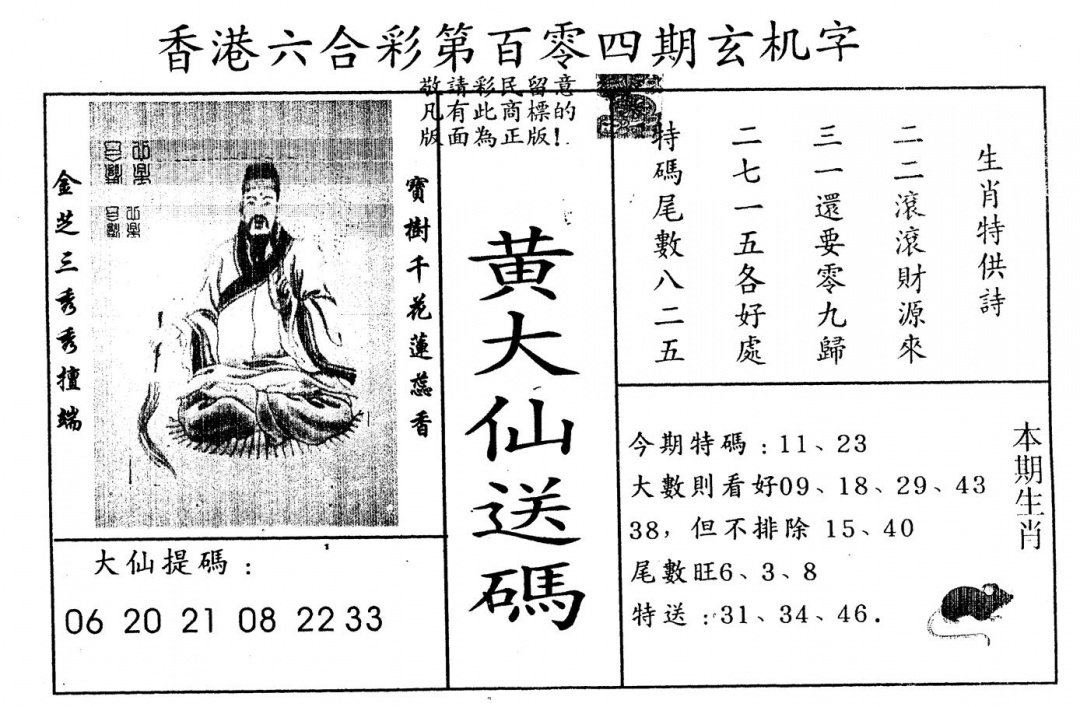 香港六合彩第百零四期玄机字
敬請彩民留意
凡有此商標的
版面為正版！
寶樹千花蓮蕊香
金芝三秀秀擅端
大仙提碼：
06 20 21 08 22 33
黄大仙送碼
生肖特供詩
二二滾滾財源來
三一還要零九歸
二七一五各好處
特碼尾數八二五
本期生肖
今期特碼：11、23
大數則看好09、18、29、43
38，但不排除 15、40
尾數旺6、3、8
特送：31、34、46.